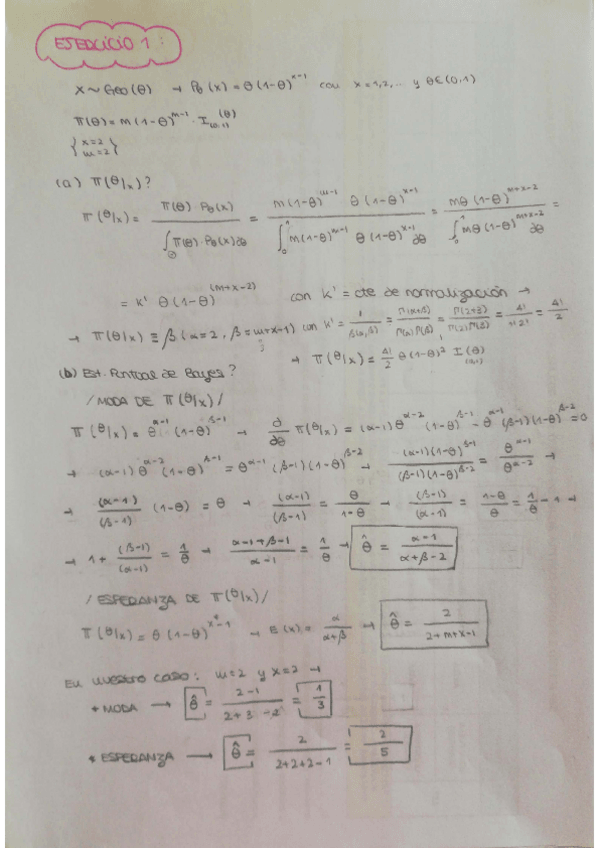 EJERCICIO 1:
X ~ Geo(θ) → Pθ(x) = θ(1-θ)^{x-1} con x=1,2,... y θ∈(0,1)
π(θ) = m(1-θ)^{m-1} · I_{(0,1)}^{(θ)}
{x=2 m=2}
(a) π(θ/x)?
π(θ/x) = π(θ) Pθ(x) / ∫_Θ π(θ)·Pθ(x)dθ = m(1-θ)^{m-1} θ(1-θ)^{x-1} / ∫_0^1 m(1-θ)^{m-1} θ(1-θ)^{x-1} dθ = mθ(1-θ)^{m+x-2} / ∫_0^1 mθ(1-θ)^{m+x-2} dθ =
= k' θ(1-θ)^{(m+x-2)} con k' = cte de normalización →
→ π(θ/x) ≡ β(α=2, β=m+x-1) con k' = 1/β(α,β) = Γ(α+β)/Γ(α)Γ(β) = Γ(2+3)/Γ(2)Γ(3) = 4!/1!2! = 4!/2
→ π(θ/x) = 4!/2 θ(1-θ)² I_{(0,1)}(θ)
(b) Est. Puntual de Bayes?
/MODA DE π(θ/x)/
π(θ/x) = θ^{α-1} (1-θ)^{β-1} → ∂/∂θ π(θ/x) = (α-1)θ^{α-2} (1-θ)^{β-1} - θ^{α-1} (β-1)(1-θ)^{β-2} = 0
→ (α-1)θ^{α-2} (1-θ)^{β-1} = θ^{α-1} (β-1)(1-θ)^{β-2} → (α-1)(1-θ)^{β-1} / (β-1)(1-θ)^{β-2} = θ^{α-1} / θ^{α-2} →
→ (α-1)/(β-1) (1-θ) = θ → (α-1)/(β-1) = θ/1-θ → (β-1)/(α-1) = 1-θ/θ = 1/θ - 1 →
→ 1 + (β-1)/(α-1) = 1/θ → α-1+β-1/α-1 = 1/θ → θ̂ = α-1/α+β-2
/ESPERANZA DE π(θ/x)/
π(θ/x) = θ(1-θ)^{x-1} → E(x) = α/α+β → θ̂ = 2/2+m+x-1
En nuestro caso: m=2 y x=2 →
* MODA → θ̂ = 2-1/2+3-2 = 1/3
* ESPERANZA → θ̂ = 2/2+2+2-1 = 2/5